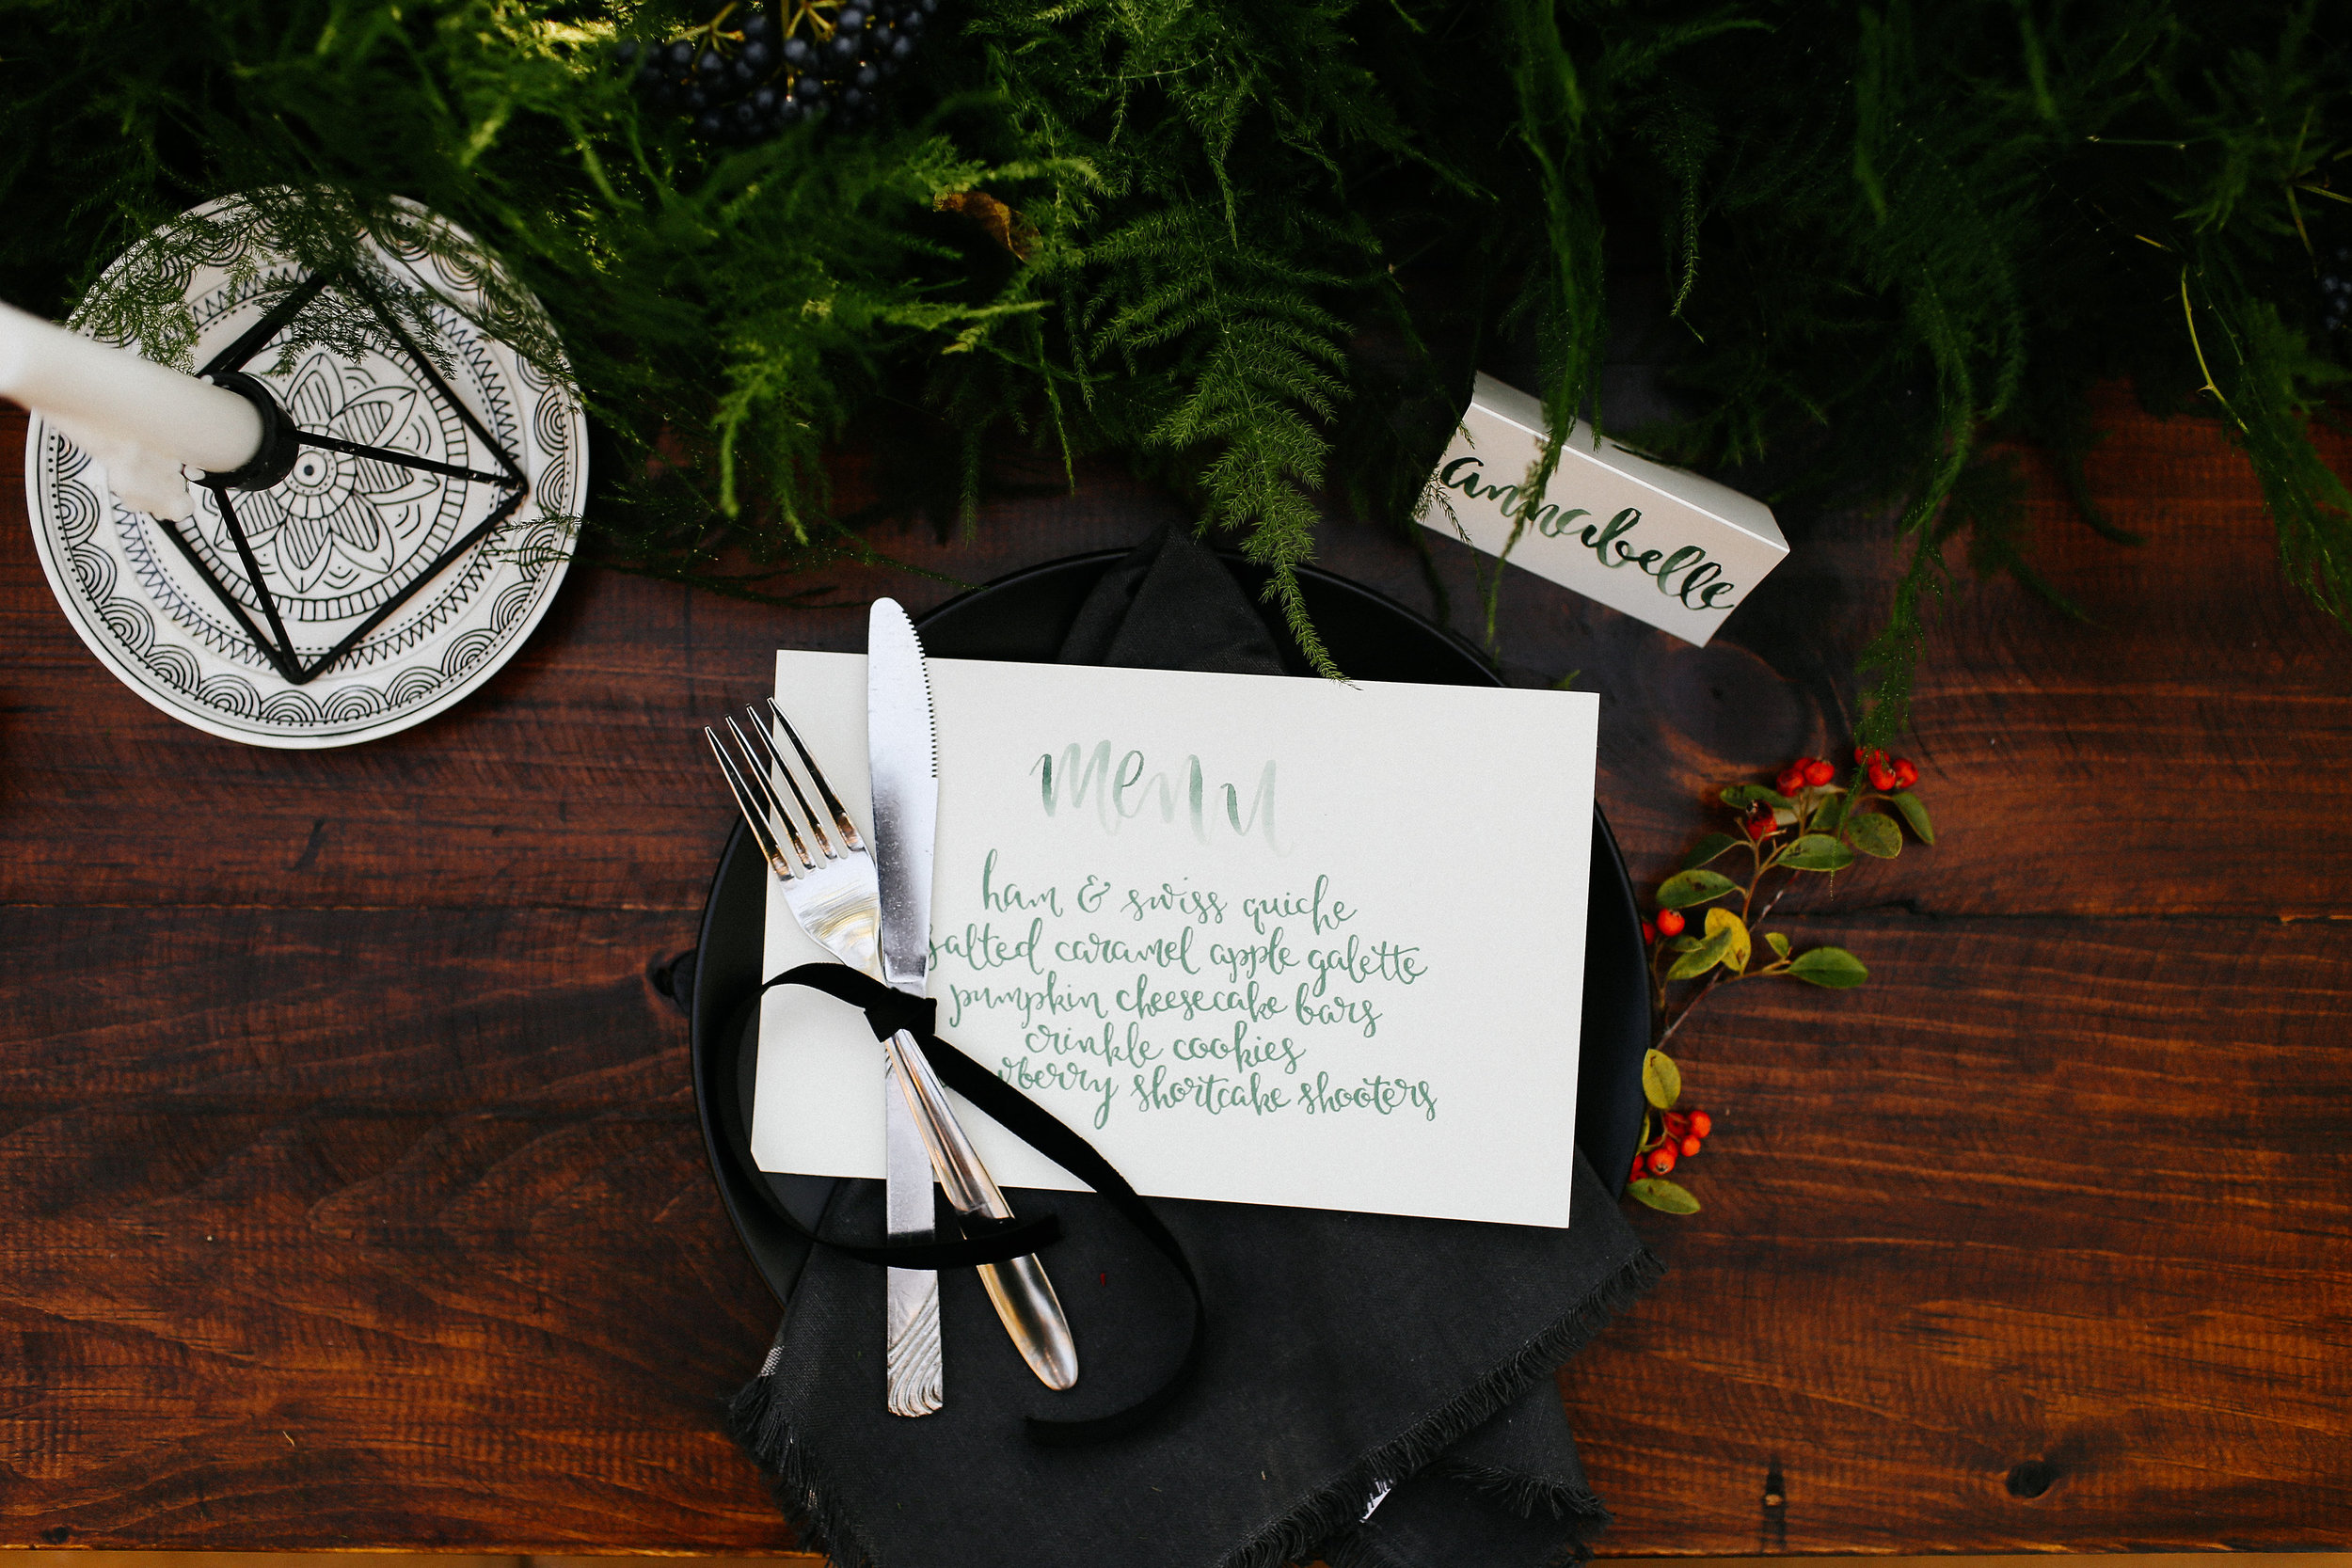 annabelle
menu
ham & swiss quiche
salted caramel apple galette
pumpkin cheesecake bars
crinkle cookies
shortcake shooters